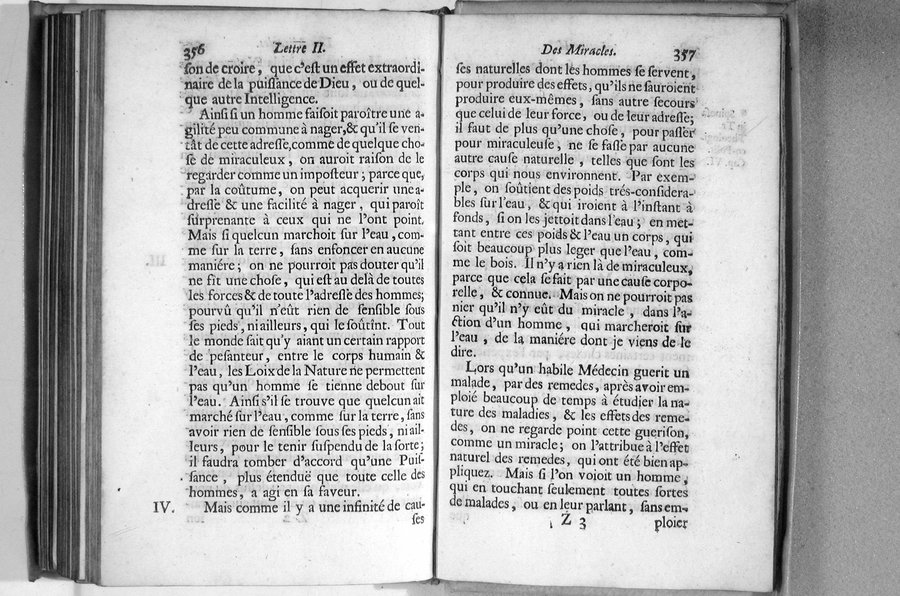 356 Lettre II.
ſon de croire, que c'eſt un effet extraordi-
naire de la puiſſance de Dieu, ou de quel-
que autre Intelligence.
Ainſi ſi un homme faiſoit paroître une a-
gilité peu commune à nager, & qu'il ſe ven-
tât de cette adreſſe, comme de quelque cho-
ſe de miraculeux, on auroit raiſon de le
regarder comme un impoſteur; parce que,
par la coûtume, on peut acquerir une a-
dreſſe & une facilité à nager, qui paroît
ſurprenante à ceux qui ne l'ont point.
Mais ſi quelcun marchoit ſur l'eau, com-
me ſur la terre, ſans enfoncer en aucune
maniére; on ne pourroit pas douter qu'il
ne fît une choſe, qui eſt au delà de toutes
les forces & de toute l'adreſſe des hommes;
pourvû qu'il n'eût rien de ſenſible ſous
ſes pieds, ni ailleurs, qui le ſoûtînt. Tout
le monde ſait qu'y aiant un certain rapport
de peſanteur, entre le corps humain &
l'eau, les Loix de la Nature ne permettent
pas qu'un homme ſe tienne debout ſur
l'eau. Ainſi s'il ſe trouve que quelcun ait
marché ſur l'eau, comme ſur la terre, ſans
avoir rien de ſenſible ſous ſes pieds, ni ail-
leurs, pour le tenir ſuſpendu de la ſorte;
il faudra tomber d'accord qu'une Puiſ-
ſance, plus étenduë que toute celle des
hommes, a agi en ſa faveur.
IV. Mais comme il y a une infinité de cau-
ſes
Des Miracles. 357
ſes naturelles dont les hommes ſe ſervent,
pour produire des effets, qu'ils ne ſauroient
produire eux-mêmes, ſans autre ſecours
que celui de leur force, ou de leur adreſſe;
il faut de plus qu'une choſe, pour paſſer
pour miraculeuſe, ne ſe faſſe par aucune
autre cauſe naturelle, telles que ſont les
corps qui nous environnent. Par exem-
ple, on ſoûtient des poids trés-conſidera-
bles ſur l'eau, & qui iroient à l'inſtant à
fonds, ſi on les jettoit dans l'eau; en met-
tant entre ces poids & l'eau un corps, qui
ſoit beaucoup plus leger que l'eau, com-
me le bois. Il n'y a rien là de miraculeux,
parce que cela ſe fait par une cauſe corpo-
relle, & connue. Mais on ne pourroit pas
nier qu'il n'y eût du miracle, dans l'a-
ction d'un homme, qui marcheroit ſur
l'eau, de la maniére dont je viens de le
dire.
Lors qu'un habile Médecin guerit un
malade, par des remedes, après avoir em-
ploié beaucoup de temps à étudier la na-
ture des maladies, & les effets des reme-
des, on ne regarde point cette gueriſon,
comme un miracle; on l'attribue à l'effet
naturel des remedes, qui ont été bien ap-
pliquez. Mais ſi l'on voioit un homme,
qui en touchant ſeulement toutes ſortes
de malades, ou en leur parlant, ſans em-
Z 3 ploier